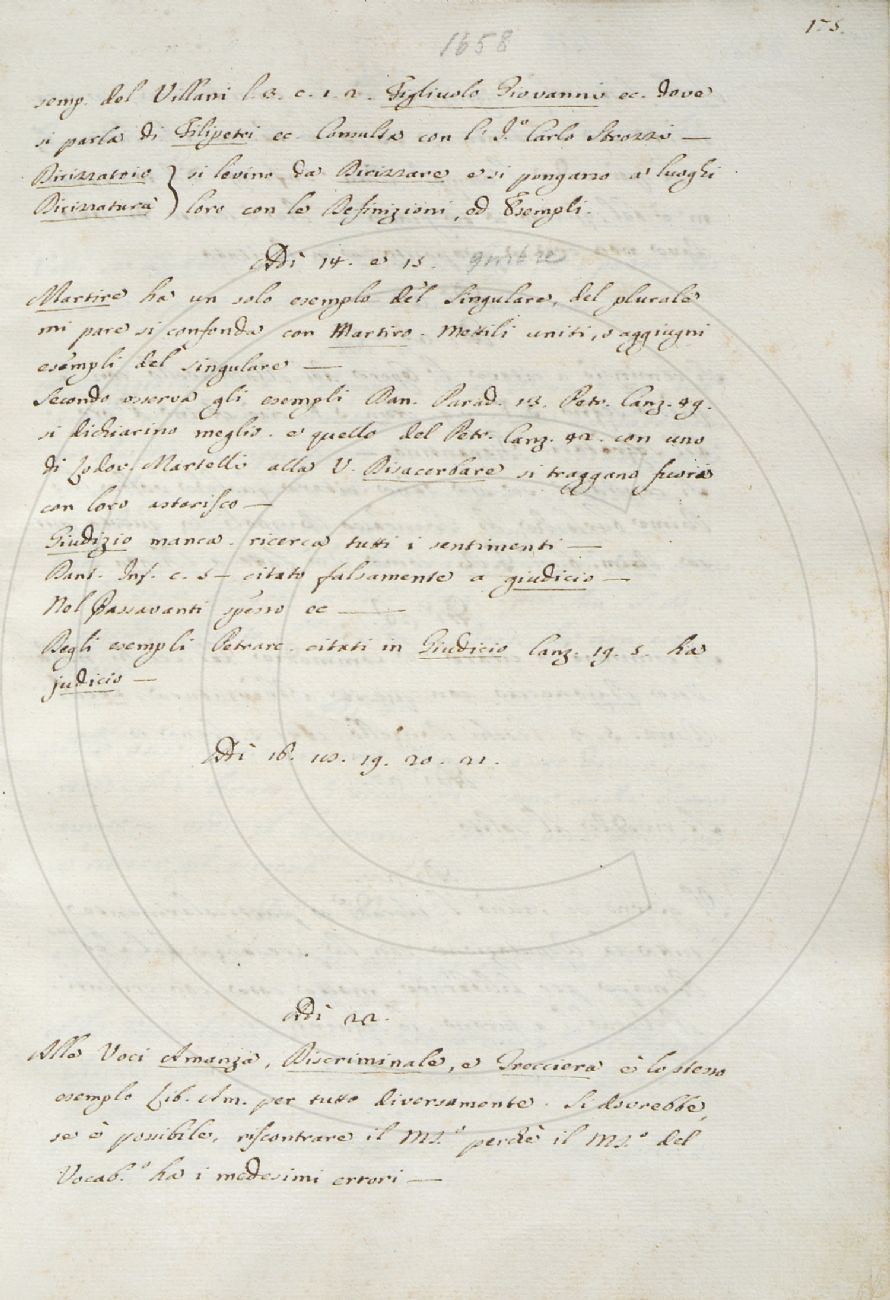 1658
175.
semp. del Villani l. 8. c. 1. 2. Figliuolo Giovanni ec. dove
si parla di Filipetri ec. Consulta con l'I.º Carlo Strozzi —
Dirizzatoio } si levino da Dirizzare e si pongano a' luoghi
Dirizzatura } loro con le Definizioni, ed Esempli.
Adì 14. e 15. 9mbre
Martire ha un solo esemplo del singulare, del plurale
mi pare si confonda con Martiro. Mettili uniti, o aggiugni
esempli del singulare —
Secondo osserva gli esempli Dan. Parad. 13. Petr. Canz. 49.
si dichiarino meglio. e quello del Petr. Canz. 42. con uno
di Lodov. Martelli alla V. Disacerbare si traggano fuora
con loro asterisco —
Giudizio manca. ricerca tutti i sentimenti —
Dant. Inf. c. 5 — citato falsamente a giudicio —
Nel Passavanti spesso ec —
Degli esempli Petrarc. citati in Giudicio Canz. 19. 5. ha
judicio —
Adì 18. 19. 20. 21.
Adì 22.
Alle Voci Amanza, Discriminale, e Trecciera è lo stesso
esemplo Lib. Am. per tutto diversamente. Si dovrebbe,
se è possibile, riscontrare il MS.º perchè il MS.º del
Vocab.º ha i medesimi errori —